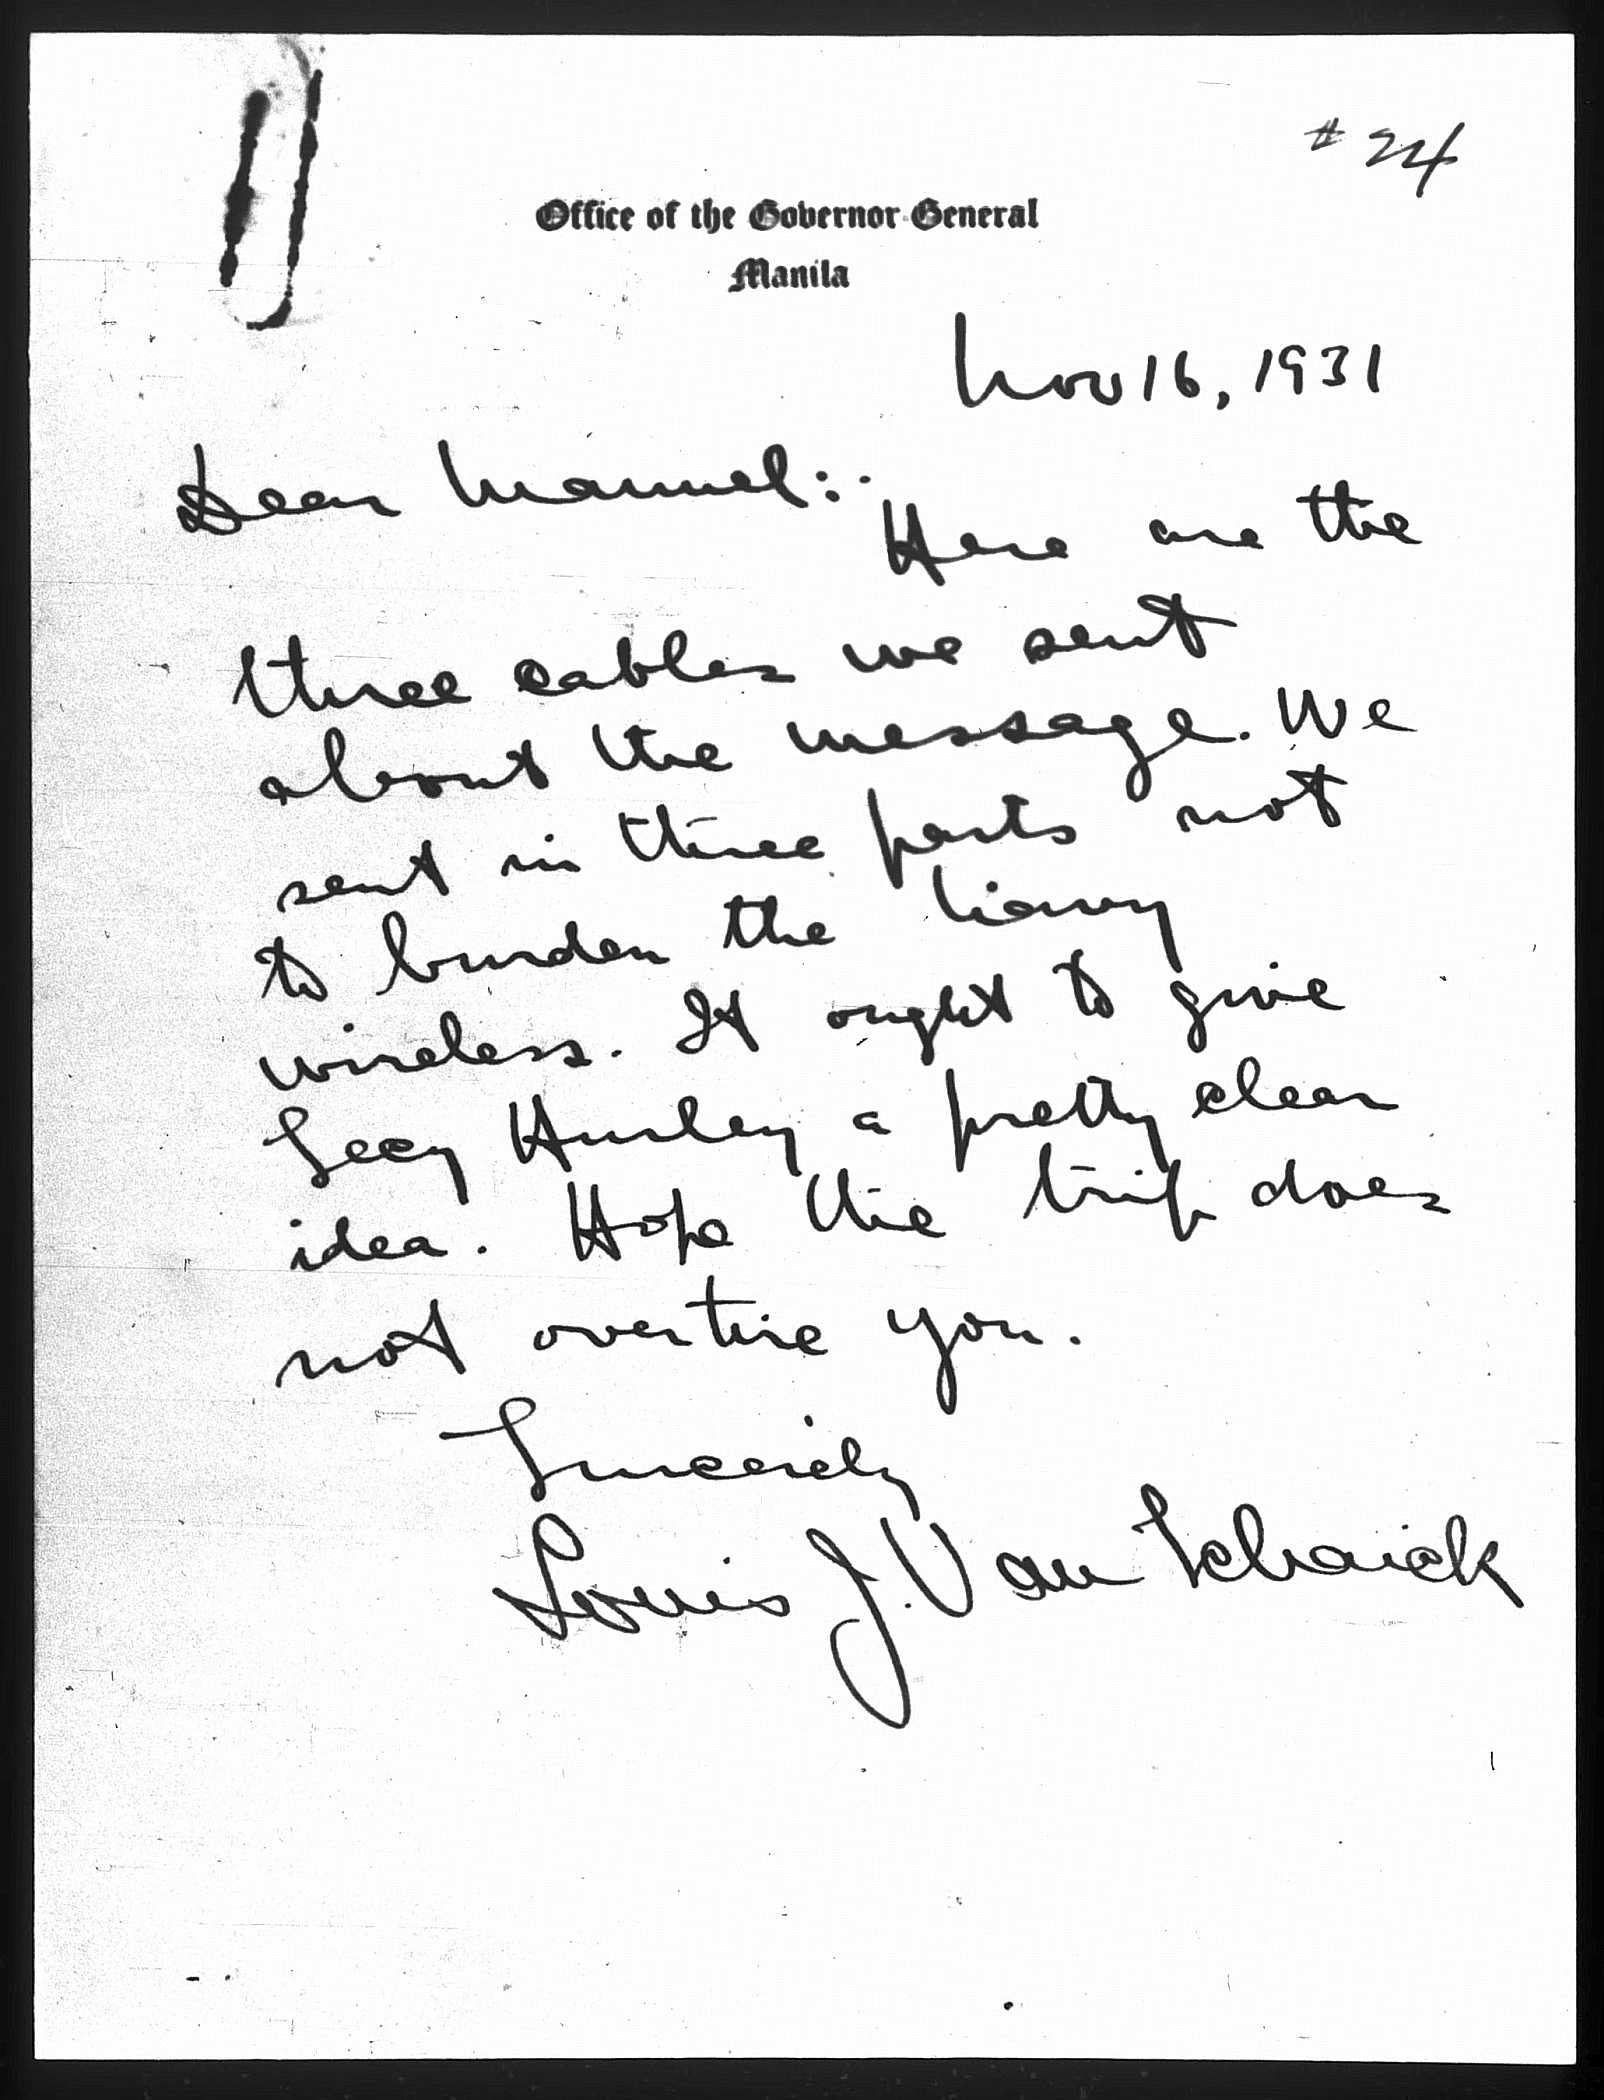 # 24
Office of the Governor-General
Manila
Nov 16, 1931
Dear Manuel:-
Here are the
three cables we sent
about the message. We
sent in three parts not
to burden the Navy
wireless. It ought to give
Secy Hurley a pretty clear
idea. Hope the trip does
not overtire you.
Sincerely
Louis J. Van Schaick